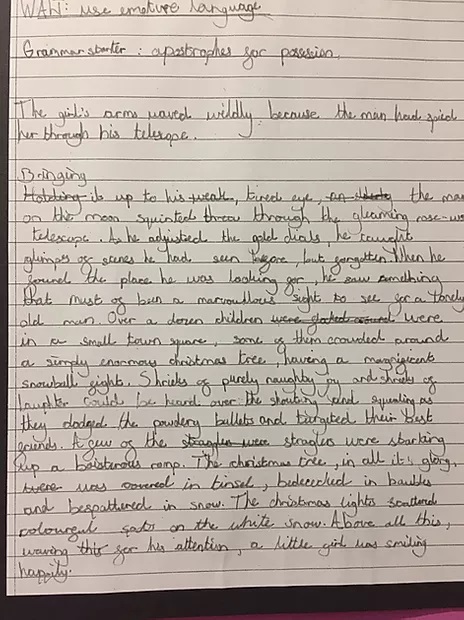 WAW: use emotive language
Grammar starter : apostrophes for possesion.
The girl's arms waved wildly because the man had spied
her through his telescope.
Bringing
Holding it up to his weak, tired eye, the man
on the moon squinted through the gleaming rose-
telescope. As he adjusted the gold dials, he caught
glimpes of scenes he had seen before but forgotten. When he
found the place he was looking for, he saw something
that must of been a marvoullous sight to see for a lonely
old man. Over a dozen children were flocked around were
in a small town square, some of them crowded around
a simply enormous christmas tree, having a magnificent
snowball fight. Shrieks of purely naughty joy and shrieks of
laughter could be heard over the shouting and squealing as
they dodged the powdery bullets and targited their best
friends. A few of the stragglers were straglers were starting
up a boisterous romp. The christmas tree, in all it's glory,
were was covered in tinsel, bedecked in baubles
and bespattered in snow. The christmas lights scattered
colourful spots on the white snow. Above all this,
waving this for his attention, a little girl was smiling
happily.